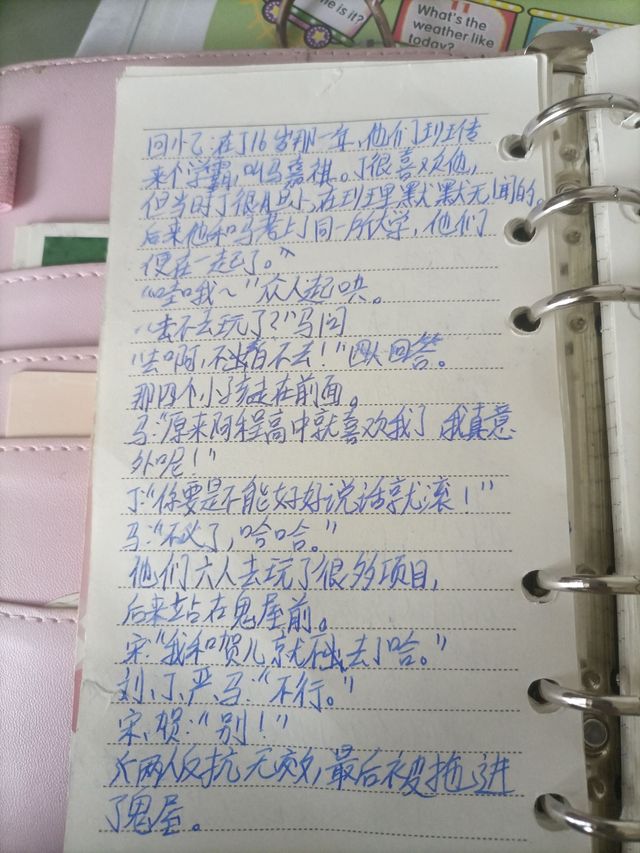 me is it?
11
What's the
weather like
today?
回忆:在丁16岁那一年,他们班转
来个学霸,叫马嘉祺。丁很喜欢他,
但当时丁很胆小,在班里默默无闻的。
后来他和马考上了同一所大学,他们
便在一起了。"
"哇哦~"众人起哄。
"去不去玩了?"马问
"去啊,不去!"四人回答。
那四个小孩走在前面。
马:"原来阿程高中就喜欢我了 我真意
外呢!"
丁:"你要是不能好好说话就滚!"
马:"不必了,哈哈。"
他们六人去玩了很多项目,
后来站在鬼屋前。
宋:"我和贺儿就不去了哈。"
刘、丁、严、马:"不行。"
宋、贺:"别!"
两人反抗无效,最后被拖进
了鬼屋。